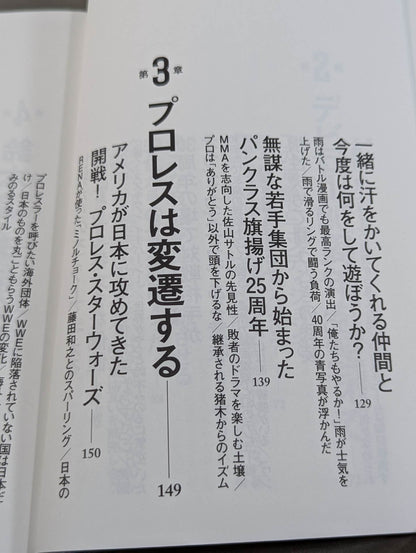 一緒に汗をかいてくれる仲間と
今度は何をして遊ぼうか? 129
雨はバトル漫画でも最高ランクの演出/「俺たちもやるか!」雨が士気を
上げた/雨で滑るリングで闘う負荷 40周年の青写真が浮かんだ
無謀な若手集団から始まった
パンクラス旗揚げ25周年 139
MMAを志向した佐山サトルの先見性 敗者のドラマを楽しむ土壌/
プロは「ありがとう」以外で頭を下げるな/継承される猪木からのイズム
第3章 プロレスは変遷する 149
アメリカが日本に攻めてきた
開戦! プロレス・スターウォーズ 150
RENAが使った「ミノルチョーク」/藤田和之とのスパーリング/日本の
プロレスラーを呼びたい海外団体/WWEに陥落されていない国は日本だ
け/日本のものを丸ごともらうWWEの変化/
みのるスタイル